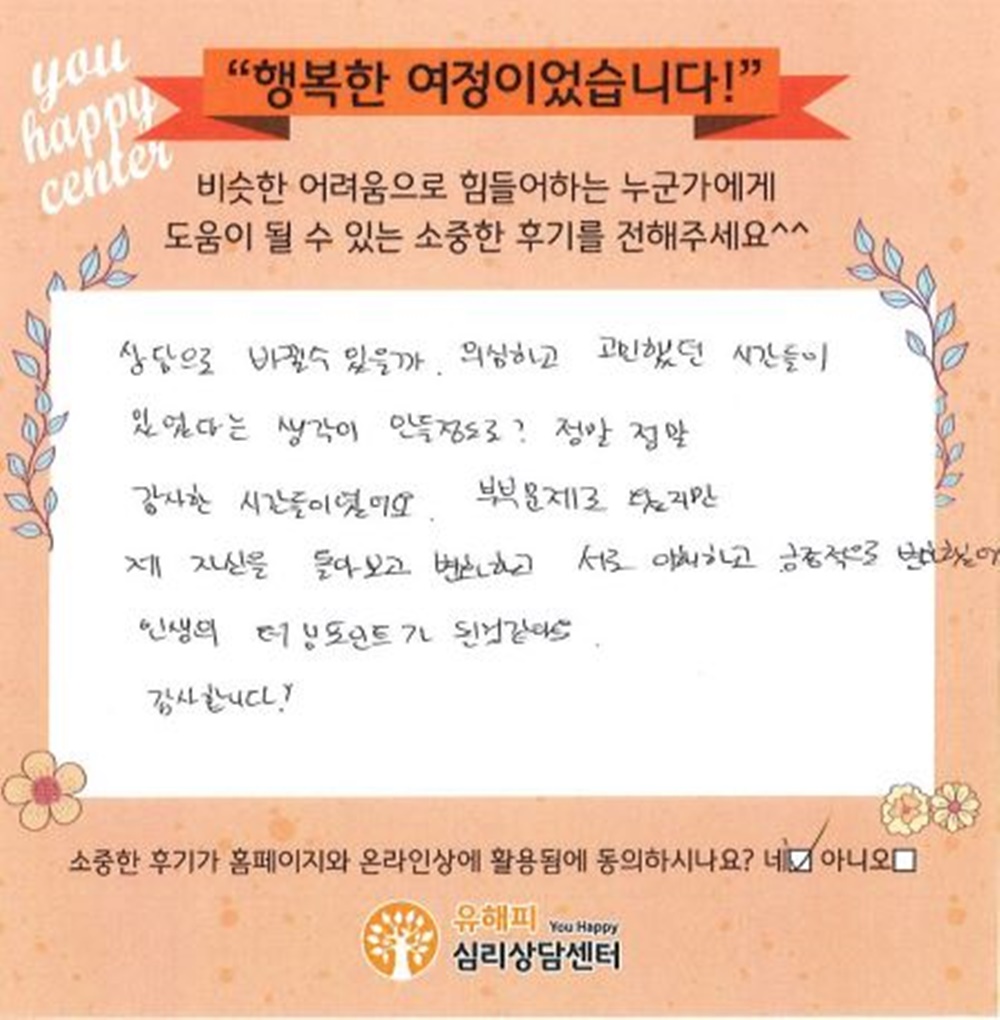 you
happy
center
“행복한 여정이었습니다!”
비슷한 어려움으로 힘들어하는 누군가에게
도움이 될 수 있는 소중한 후기를 전해주세요^^
상담으로 바뀔수 있을까. 의심하고 고민했던 시간들이
있었다는 생각이 안들정도로? 정말 정말
감사한 시간들이였어요. 부부문제로 왔지만
제 자신을 돌아보고 변화하고 서로 이해하고 긍정적으로
인생의 터닝포인트가 된것같아요.
감사합니다!
소중한 후기가 홈페이지와 온라인상에 활용됨에 동의하시나요? 네☑ 아니오☐
유해피 You Happy
심리상담센터